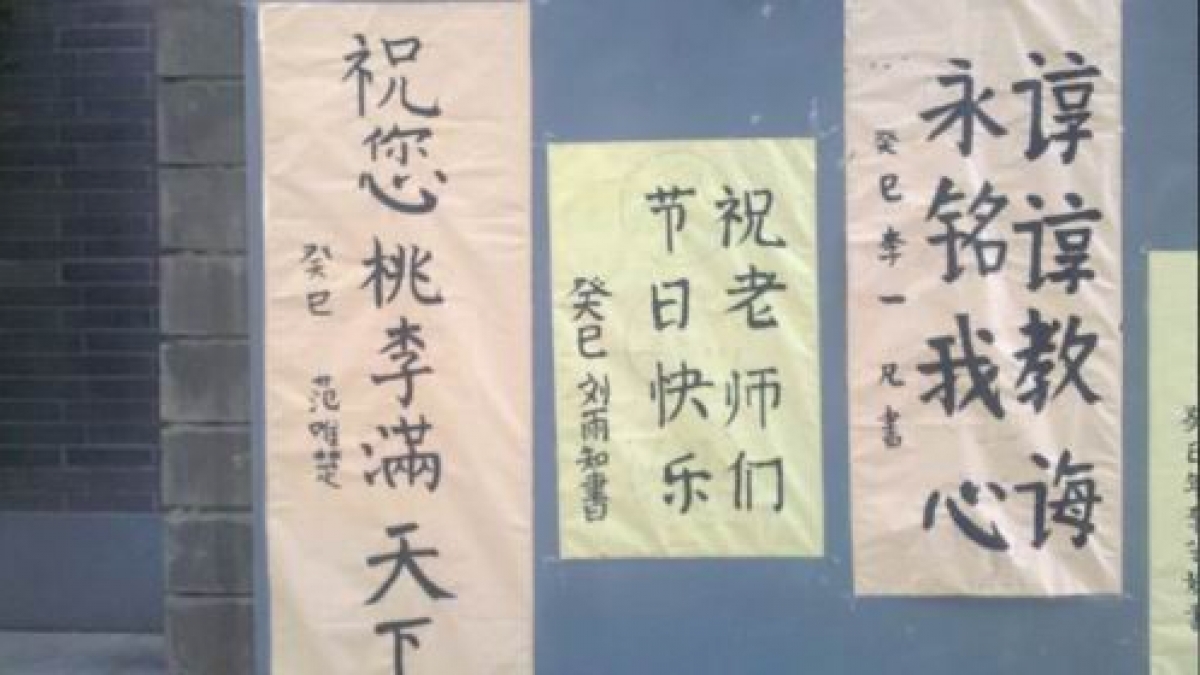 谆谆教诲
永铭我心
癸巳李一兄書
祝老师们
节日快乐
癸巳刘雨知書
祝您桃李满天下
癸巳 范唯楚